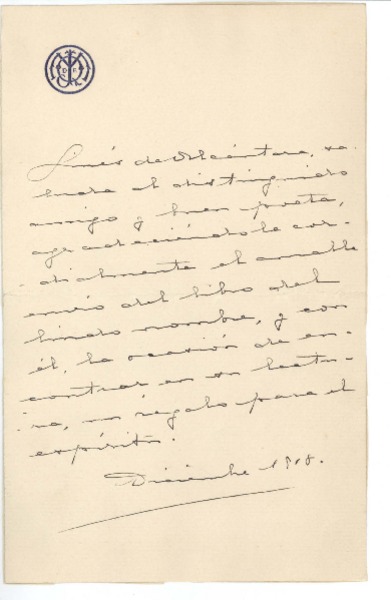 Ginés de Alcántara, sa-
luda al distinguido
amigo y buen poeta,
agradeciéndole cor-
dialmente el amable
envío del libro del
lindo nombre, y con
él, la ocasión de en-
contrar en su lectu-
ra, un regalo para el
espíritu.
Diciembre 1918.